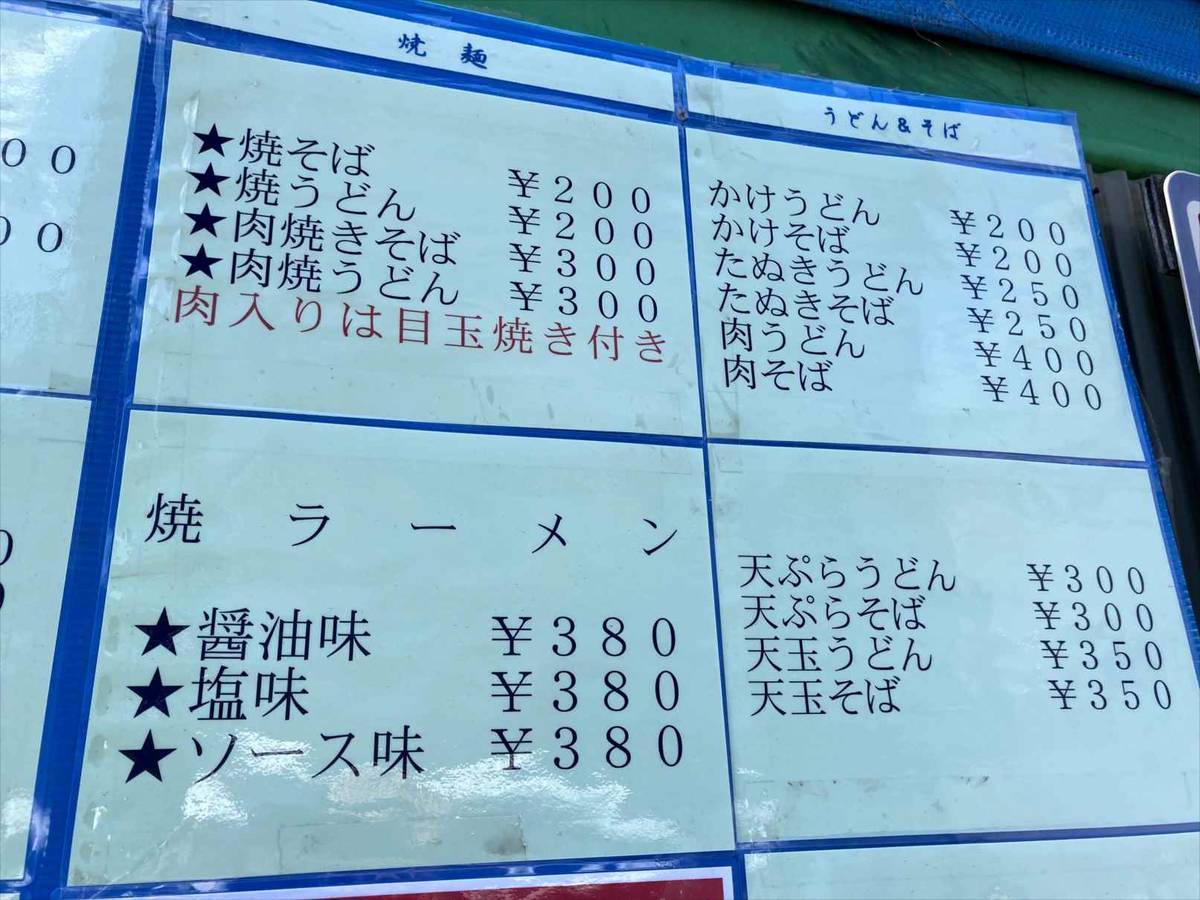 焼麺
★焼そば ￥２００
★焼うどん ￥２００
★肉焼きそば ￥３００
★肉焼うどん ￥３００
肉入りは目玉焼き付き
焼ラーメン
★醤油味 ￥３８０
★塩味 ￥３８０
★ソース味 ￥３８０
うどん＆そば
かけうどん ￥２００
かけそば ￥２００
たぬきうどん ￥２５０
たぬきそば ￥２５０
肉うどん ￥４００
肉そば ￥４００
天ぷらうどん ￥３００
天ぷらそば ￥３００
天玉うどん ￥３５０
天玉そば ￥３５０